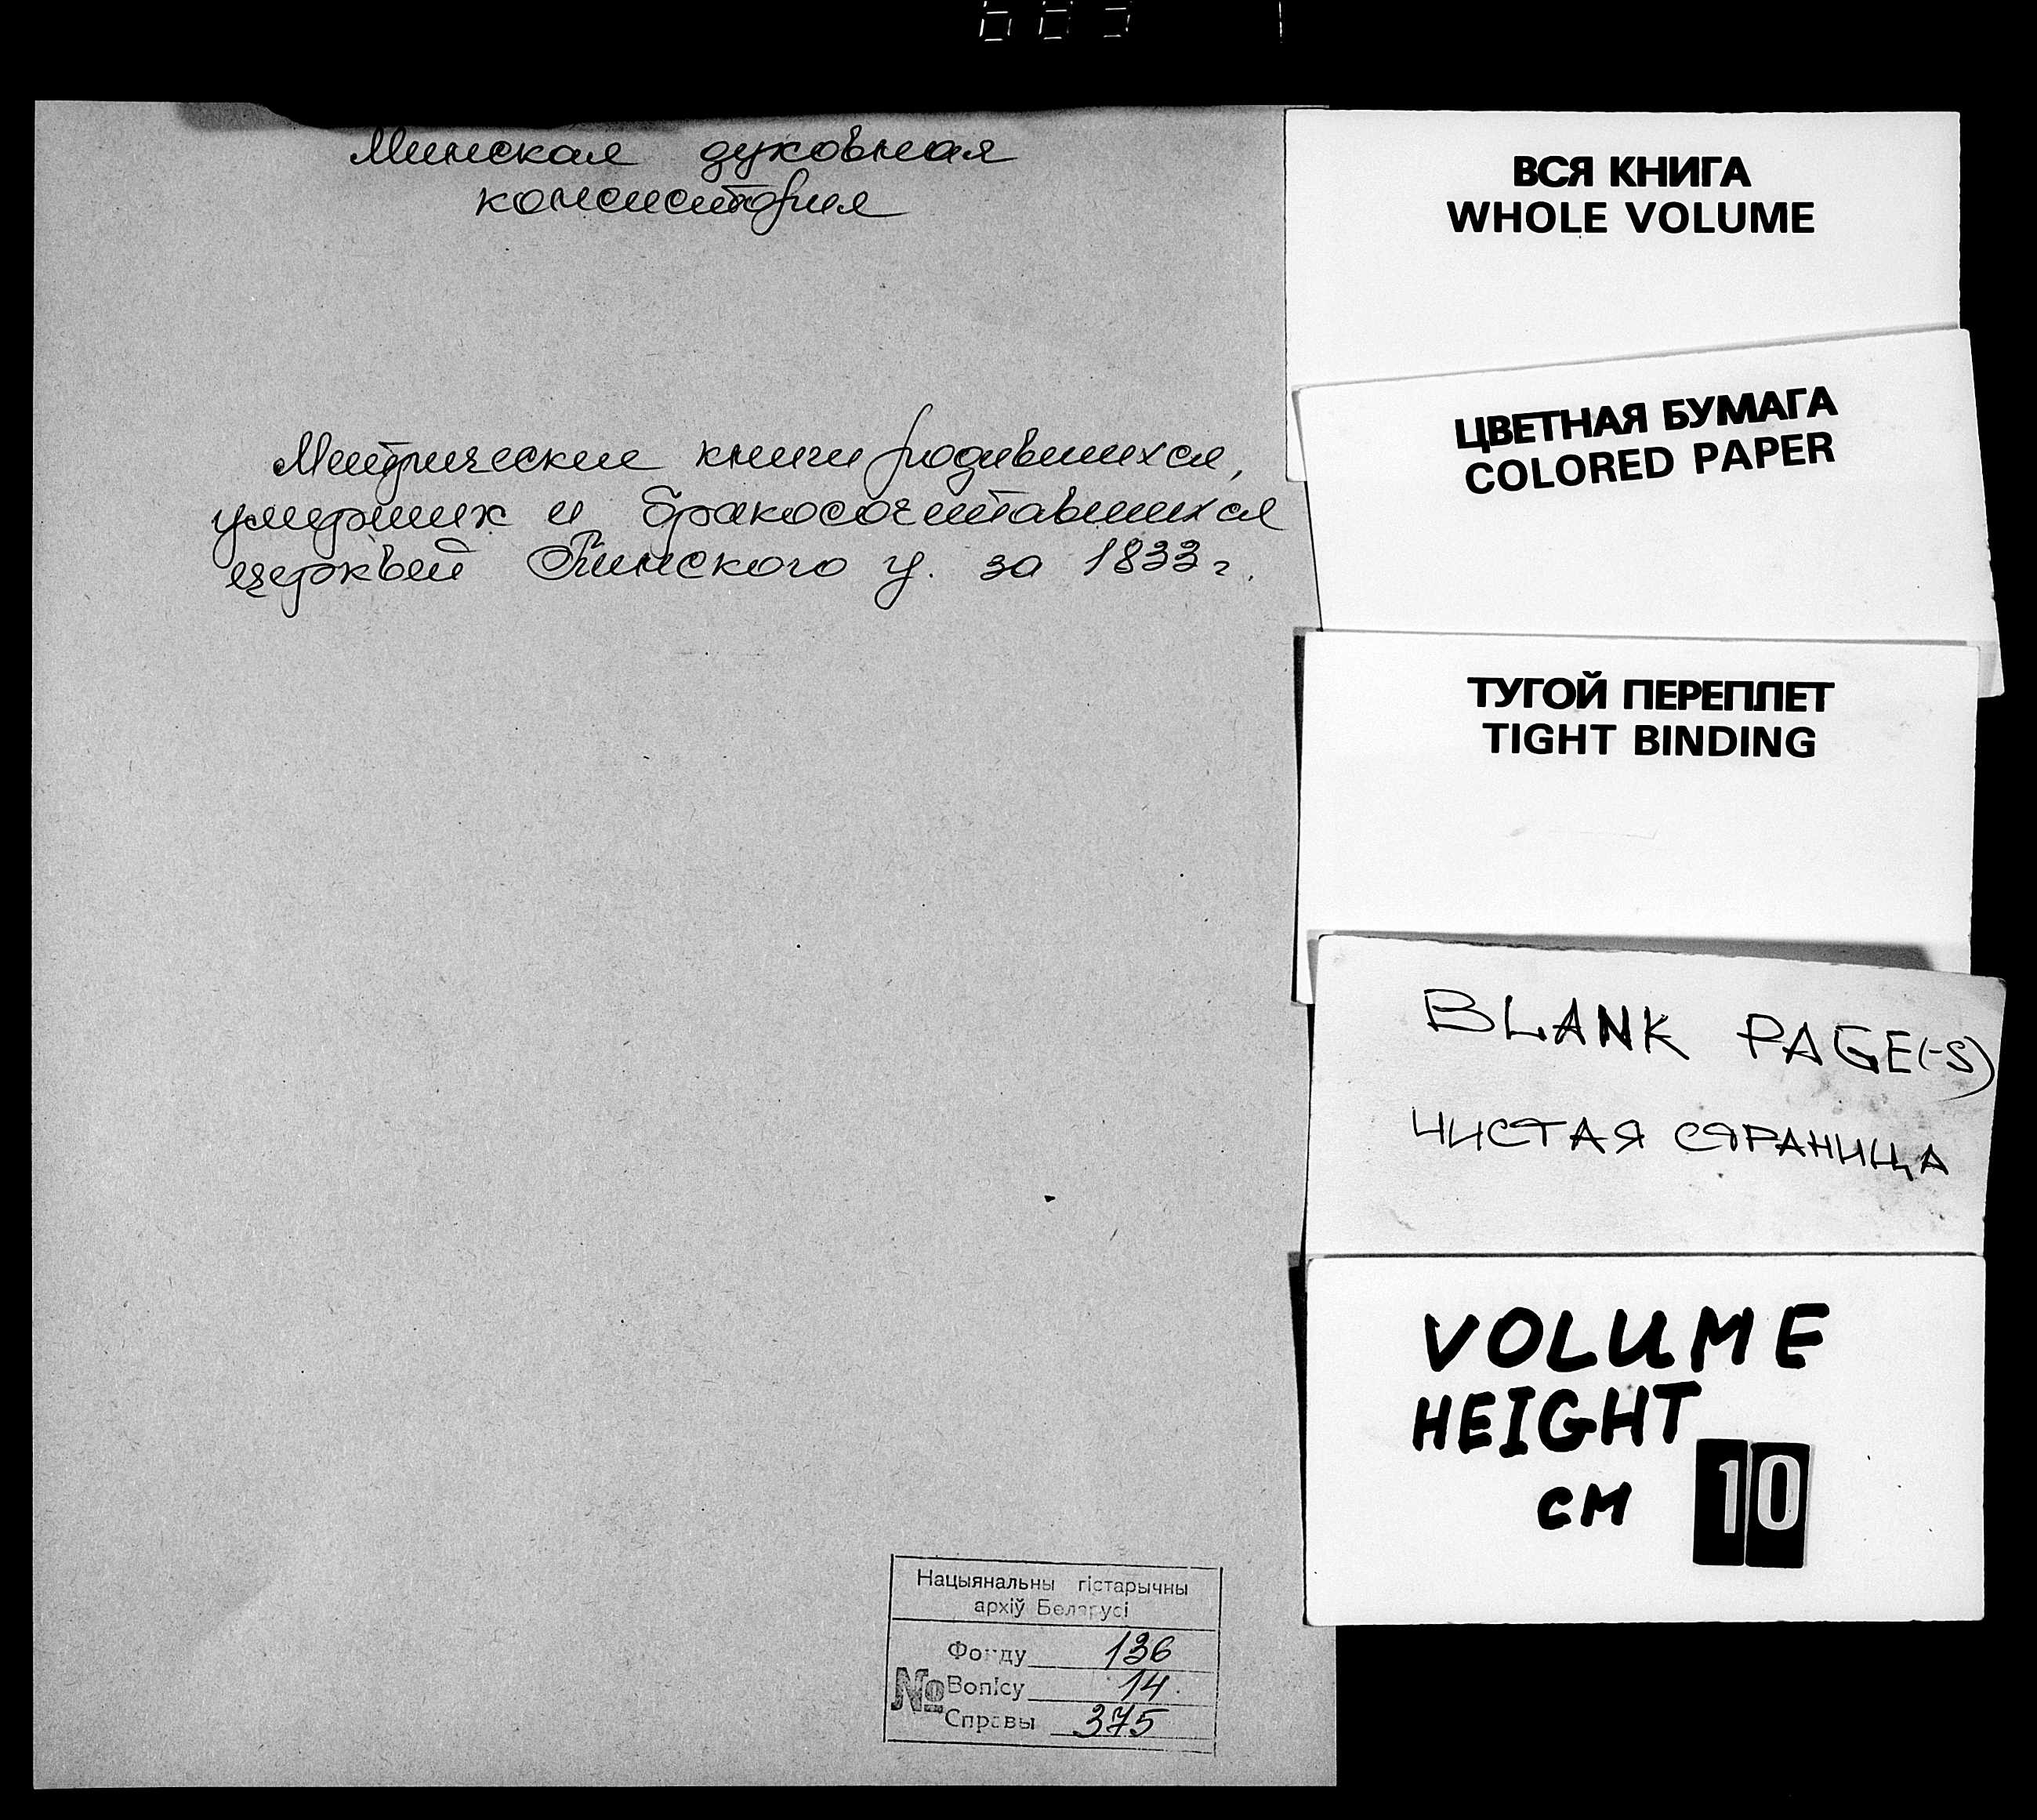 Минская духовная
консистория
Метрические книги родившихся,
умерших и бракосочетавшихся
церквей Пинского у. за 1833 г.
Нацыянальны гістарычны
архіў Беларусі
Фонду 136
№ Вопісу 14
Справы 375
ВСЯ КНИГА
WHOLE VOLUME
ЦВЕТНАЯ БУМАГА
COLORED PAPER
ТУГОЙ ПЕРЕПЛЕТ
TIGHT BINDING
BLANK PAGE(-S)
ЧИСТАЯ СТРАНИЦА
VOLUME
HEIGHT
CM 10